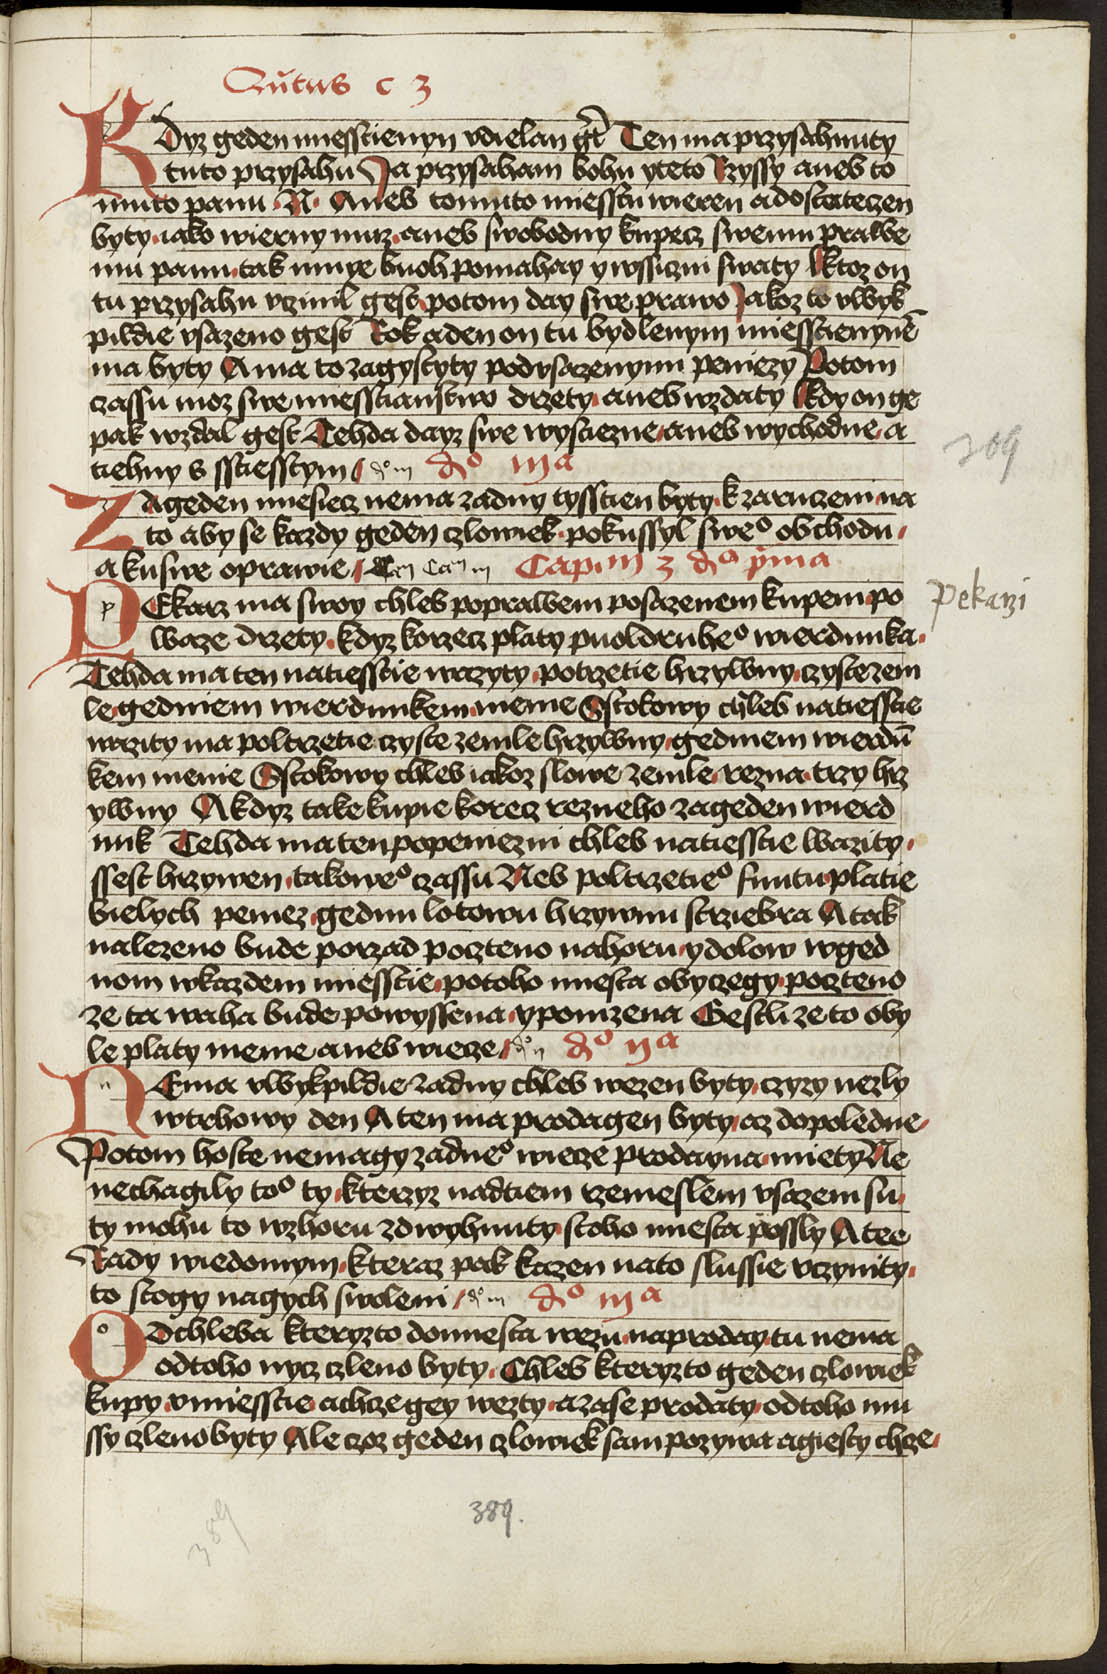 c 3
Kdyz geden miesstienyn vdielan gt Ten ma przysahnuty
tuto przysahu Ja przysaham bohu yteto Rzyssy aneb to
muto panu N Aneb tomuto miesstu wieren a dostateczen
byty iako wierny muz aneb swobodny kupecz swemu prawe
mu panu tak mnye buoh pomahay y wssiczni swaty Ktoz on
tu przysahu vczinil gest potom day swe prawo Jakoz to vwyk
pildie vsazeno gest Rok a den on tu bydlenym miesstienyne
ma byty A ma to zagystyty podvsazenymi peniezy Potom
czassu moz swe miesstianstwo drzety aneb wzdaty Kdy on ge
pak wzdal gest Tehda dayz swe wystiezne aneb wychodne a
tiehny s sstiesstym do iii do iiia
Zageden miesiecz nema zadny tysstien byty k zaruczeni na
to aby se kazdy geden czlowiek pokussyl sweo obchodu
a kuswe oprawie Cap iii 3 do pma
PEkarz ma swoy chleb poprawem posazenem kupeni po
waze drzety kdyz korzecz platy puoldruheo wierdunka
Tehda ma ten natiesstie wazyty potrzetie hrzywny czystezem
le gedniem wierdunkem menie Sstokowy chleb natiesstie
wazity ma poltrzetie czyste zemle hrzywny gedniem wierdu
kem menie Sstokowy chleb iakoz slowe zemle rezna trzy hrz
ywny A kdyz take kupie korecz rezneho zageden wierd
unk Tehda ma ten popeniezni chleb natiesstie wazity
ssest hrzywen takoweo czassu Neb poltrzetieo funtu platie
bielych peniez gednu lotowu hrzywnu strziebra A tak
nalezeno bude porzad pocteno nahoru y dolow wged
nom wkazdem miesstie potoho miesta obyczegy pocteno
ze ta waha bude powyssena y ponizena Gestli ze to oby
le platy menie aneb wiecze do ii do iia
NEma vwykpildie zadny chleb wezen byty czyzy nezly
wtrhowy den A ten ma prodagen byty az dopoledne
Potom hoste nemagy zadneo wiecze prodayna miety Ne
nechagily too ty kterzyz nadtiem rzemeslem vsazeni su
ty mohu to wzhoru zdwyhnuty stoho miesta possly A tee
Rady wiedomym kteraz pak kazen nato slussie vczynity
to stogy nagych swoleni do iii do iiia
ODchleba kteryzto domiesta wezu naproday tu nema
odtoho nycz czleno byty Chleb kteryzto geden czlowiek
kupy vmiesstie a chcze gey wezty a zase prodaty odtoho mu
ssy czleno byty Ale czoz geden czlowiek sam pozywa a giesty chcze
309
Pekarzi
389
389.